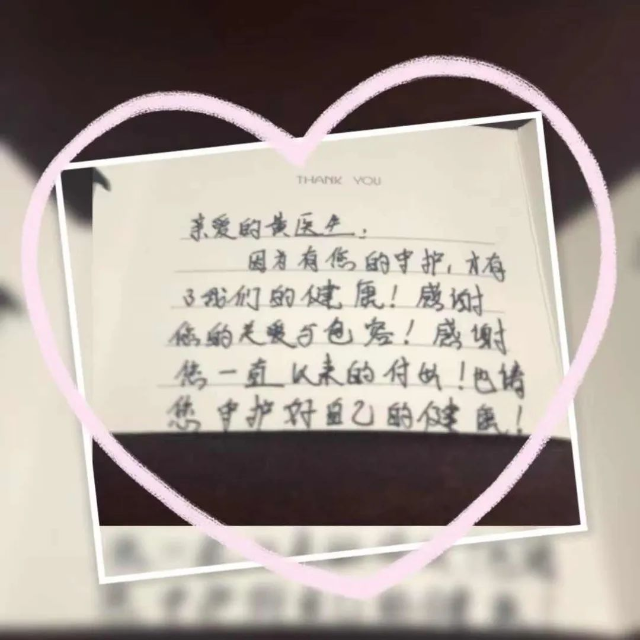 THANK YOU
亲爱的黄医生:
因为有您的守护,才有
了我们的健康!感谢
您的关爱与包容!感谢
您一直以来的付出!也请
您守护好自己的健康!